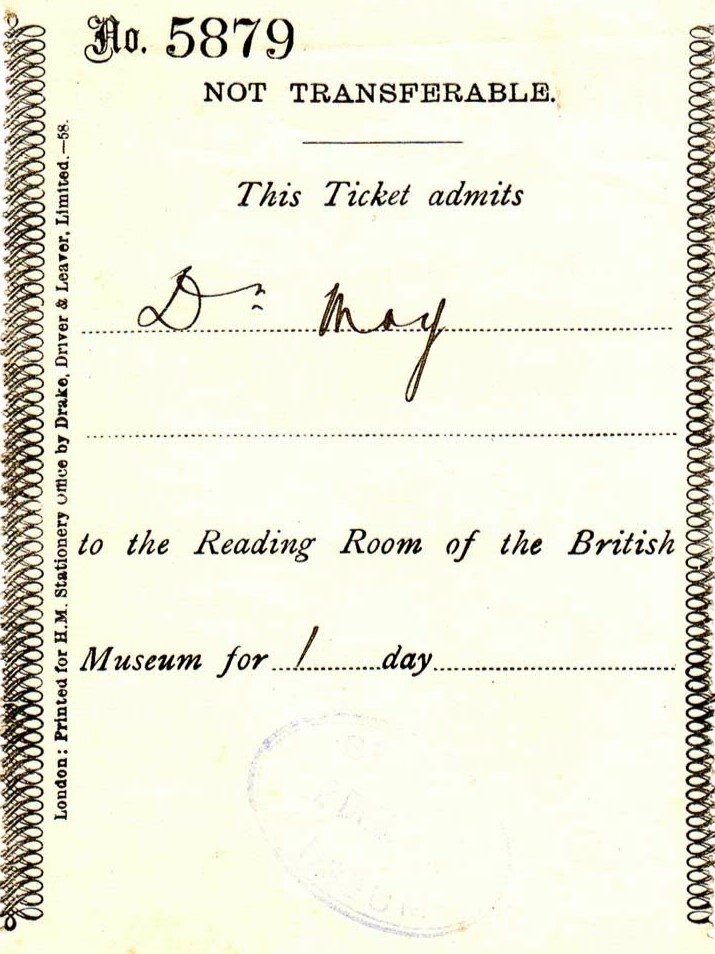 No. 5879
NOT TRANSFERABLE.
This Ticket admits
Dr May
to the Reading Room of the British
Museum for 1 day
London: Printed for H.M. Stationery Office by Drake, Driver & Leaver, Limited.—58.